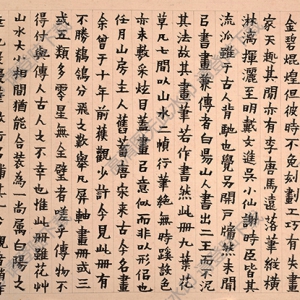 金碧焜煌但彼時不免刻劃工巧有失畫
家天趣其間亦有李唐馬遠落筆縱橫
淋漓揮灑至明戴文進吳小仙謝時臣皆其
流派雖于古人背馳也覺另開戶牖然未聞
弓書畫兼傳者白陽山人書出二王而不泥
其法故其畫筆若作書然此冊九葉花
草凡七間以山水二幀行筆絕無時蹊設色
亦未數采炫目蓋畫弓意似而非以形侣也
任月山房主人舊蓄唐宋來古今名畫
余曾于十年前獲觀少許今見此冊有
不勝鶺鴒分飛之數舉凡屏軸畫冊或三
或五類多零星無全璧者嗟乎傳物不
得付與傳人古人之不幸也惟此冊雖花艸
山水大小相間猶能合裝為一尚屬白陽之